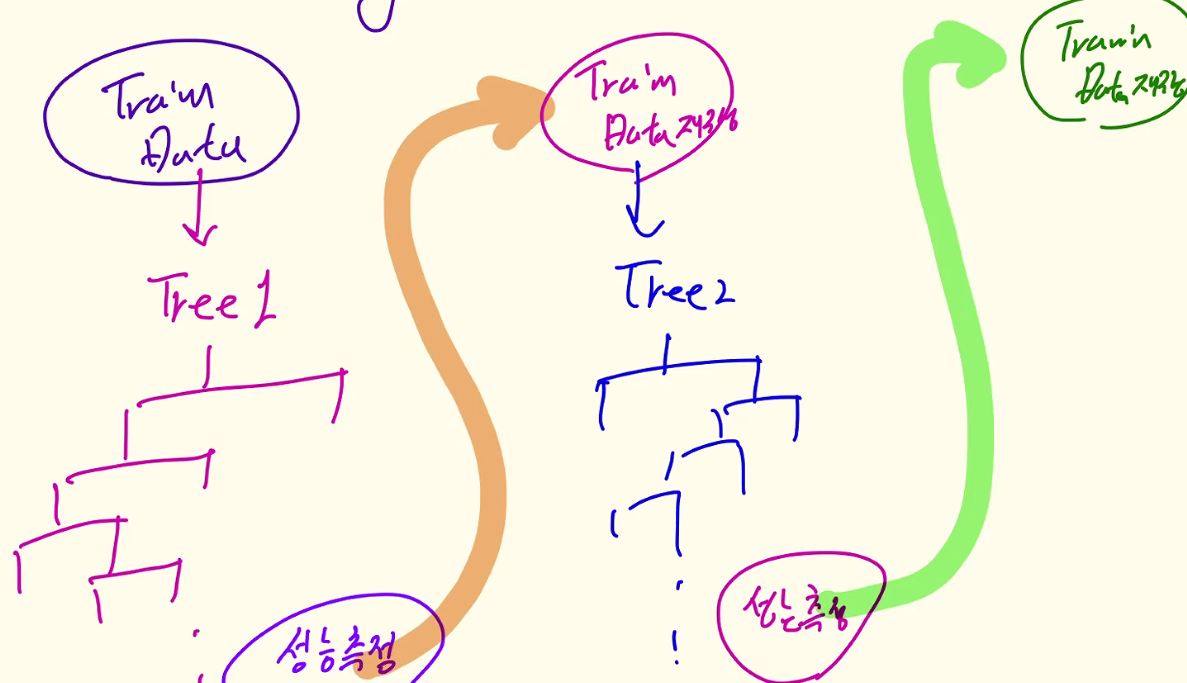 Train
Data
Tree 1
성능측정
Train
Data
Tree 2
성능측정
Train
Data